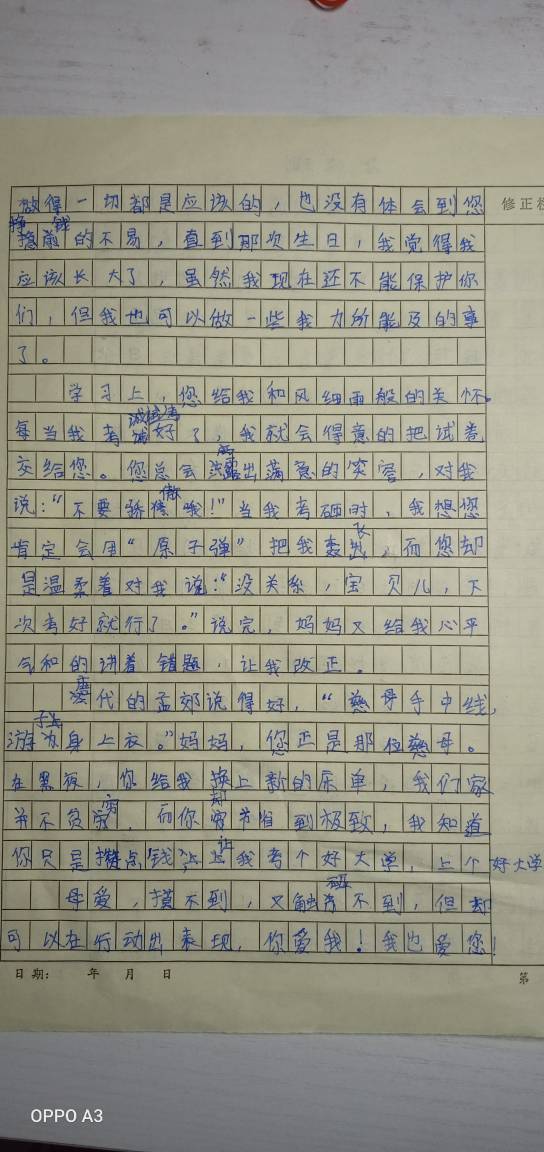 做得一切都是应该的，也没有体会到您
修正栏
挣钱
的不易，直到那次生日，我觉得我
应该长大了，虽然我现在还不能保护你
们，但我也可以做一些我力所能及的事
了。
学习上，您给我和风细雨般的关怀。
每当我考好了，我就会得意的把试卷
交给您。您总会流露出满意的笑容，对我
说：“不要骄傲哦！”当我考砸时，我想您
肯定会用“原子弹”把我轰出，而您却
是温柔着对我说：“没关系，宝贝儿，下
次考好就行了。”说完，妈妈又给我心平
气和的讲着错题，让我改正。
唐代的孟郊说得好，“慈母手中线，
游子身上衣。”妈妈，您正是那位慈母。
在黑夜，你给我换上新的床单，我们家
并不贫穷，而你却节省到极致，我知道
你只是攒点钱让我考个好大学，上个好大学
母爱，摸不到，又触不到，但却
可以在行动出表现，你爱我！我也爱您！
日期： 年 月 日
第
OPPO A3